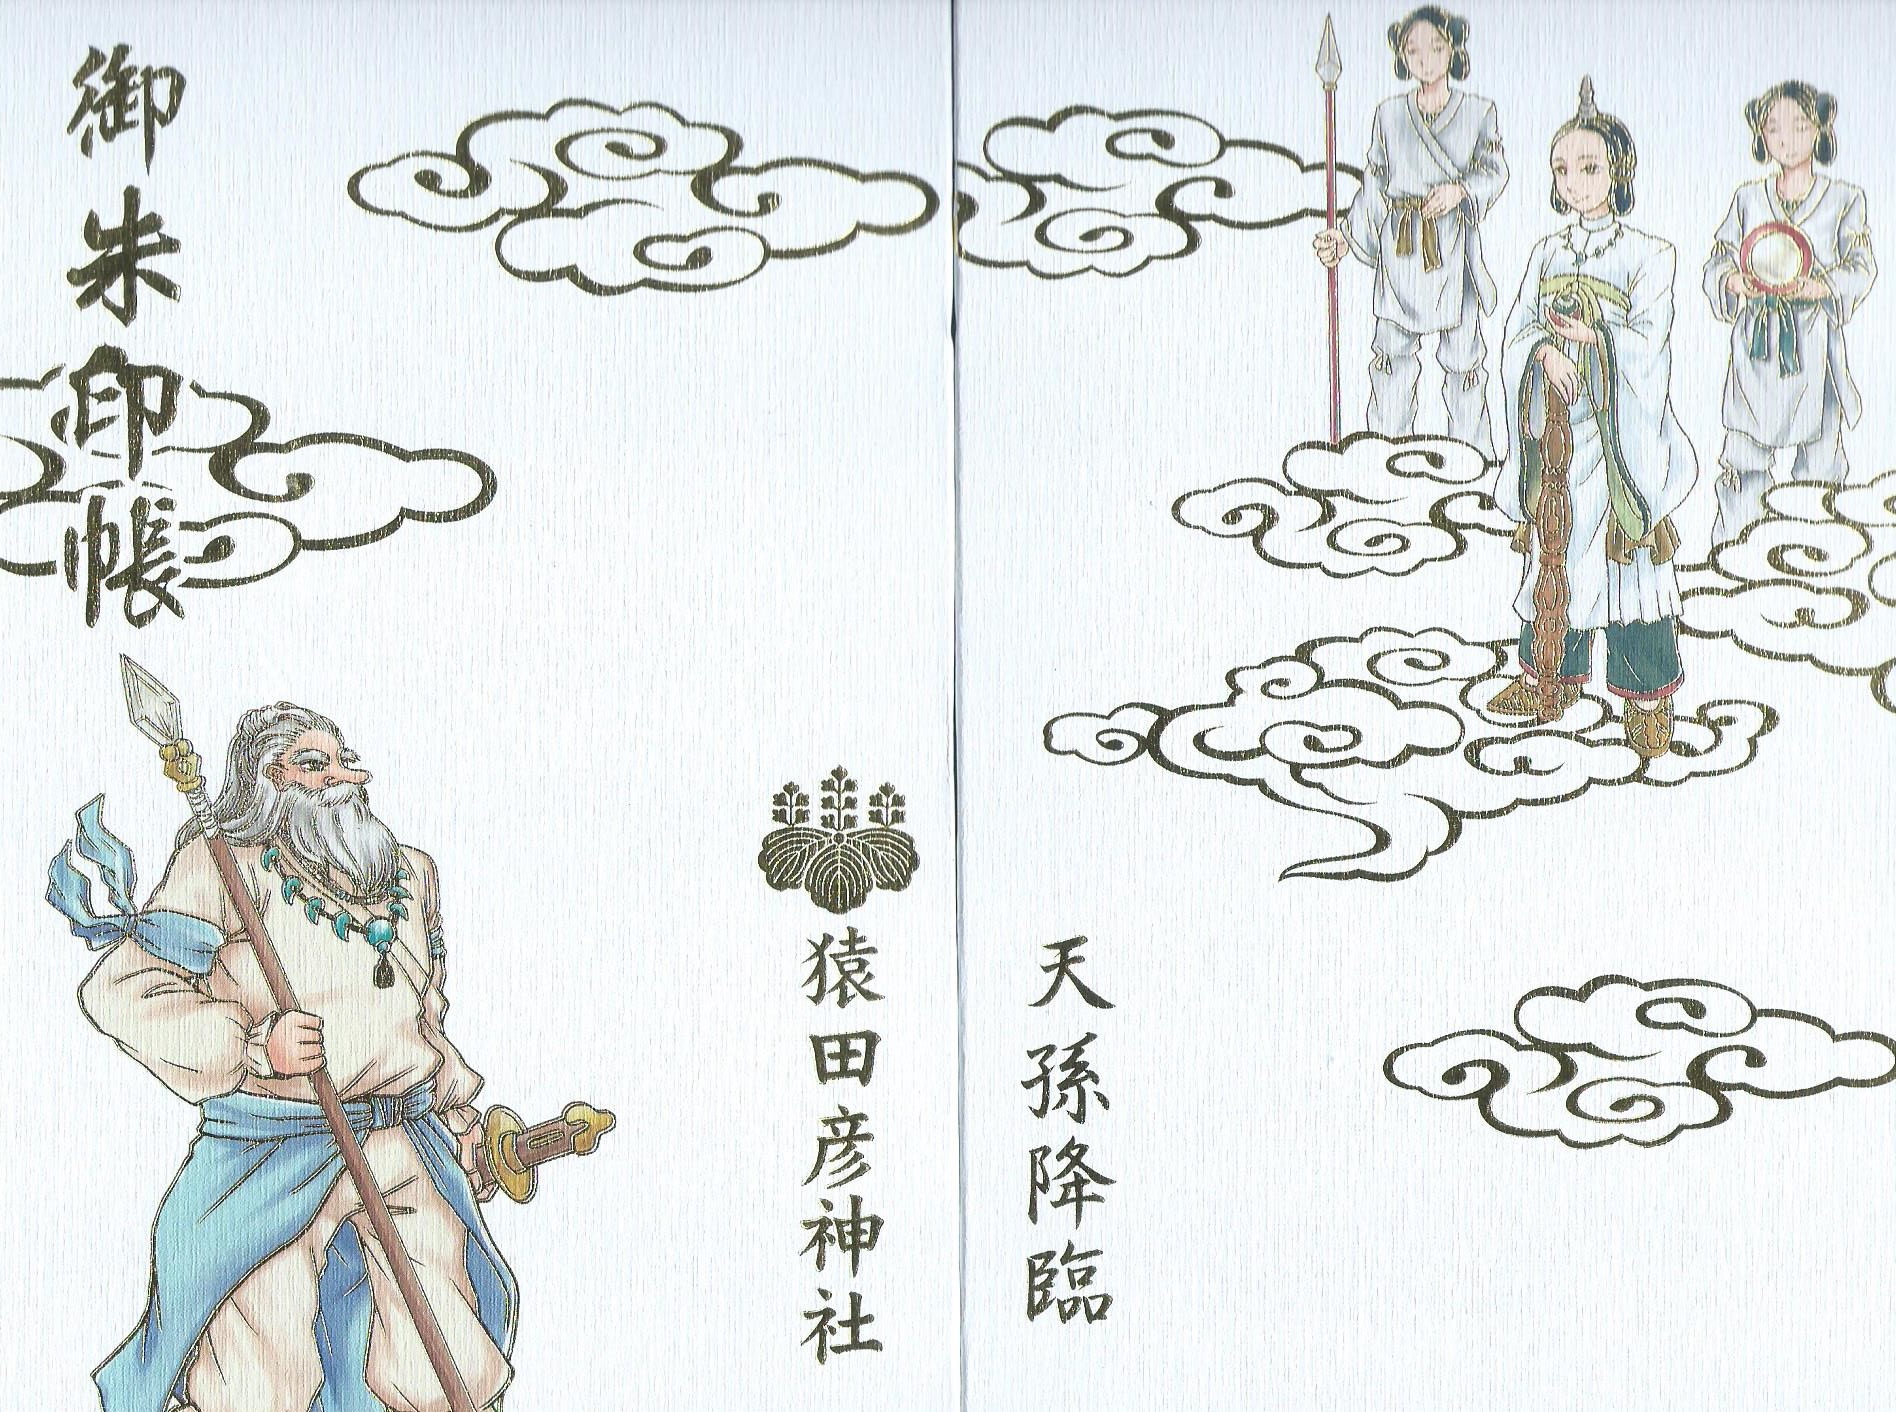 御朱印帳
猿田彦神社
天孫降臨